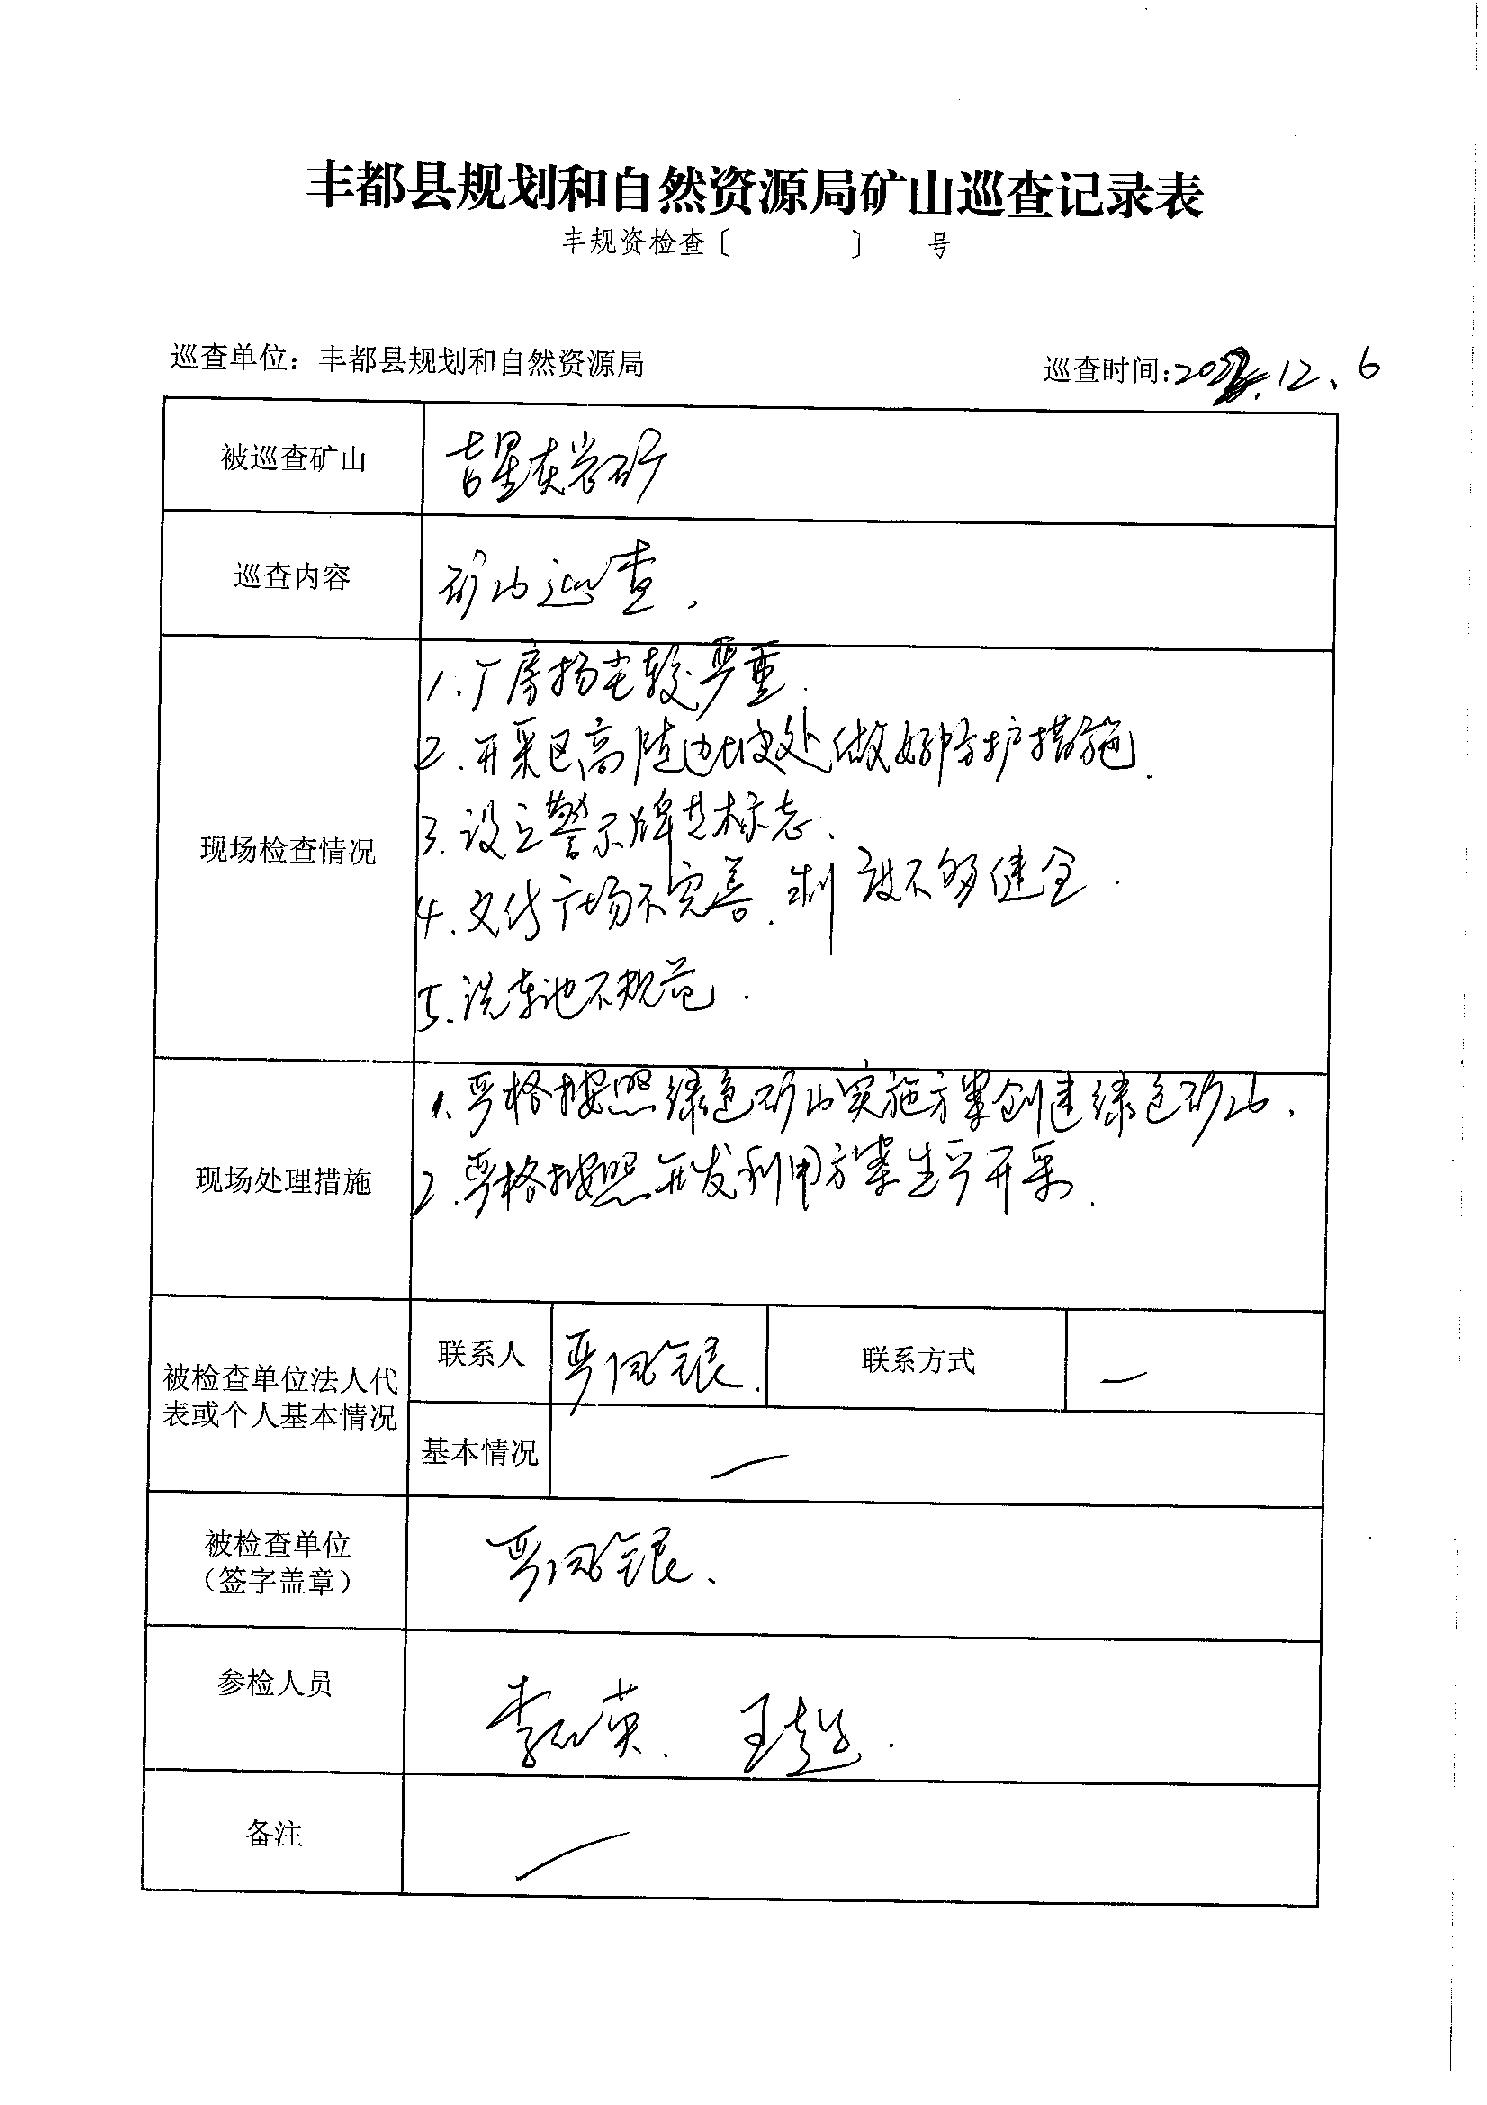 丰都县规划和自然资源局矿山巡查记录表
丰规资检查〔 〕 号
巡查单位：丰都县规划和自然资源局 巡查时间：202 .12.6
被巡查矿山 吉星灰岩矿
巡查内容 矿山巡查.
1.厂房扬尘较严重.
2.开采区高陡边坡处做好防护措施.
现场检查情况 3.设立警示牌其标志.
4.文化广场不完善.制度不够健全.
5.洗车池不规范.
1.严格按照绿色矿山实施方案创建绿色矿山.
现场处理措施 2.严格按照开发利用方案生产开采.
被检查单位法人代
表或个人基本情况
联系人 严 银. 联系方式 一
基本情况 一
被检查单位
（签字盖章）
严 银.
参检人员 李 英. 王超.
备注 一